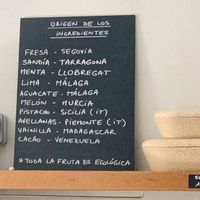 ORIGEN DE LOS
INGREDIENTES
FRESA - SEGOVIA
SANDÍA - TARRAGONA
MENTA - LLOBREGAT
LIMA - MÁLAGA
AGUACATE - MÁLAGA
MELÓN - MURCIA
PISTACHO - SICILIA (IT)
AVELLANAS - PIEMONTE (IT)
VAINILLA - MADAGASCAR
CACAO - VENEZUELA
*TODA LA FRUTA ES ECOLÓGICA